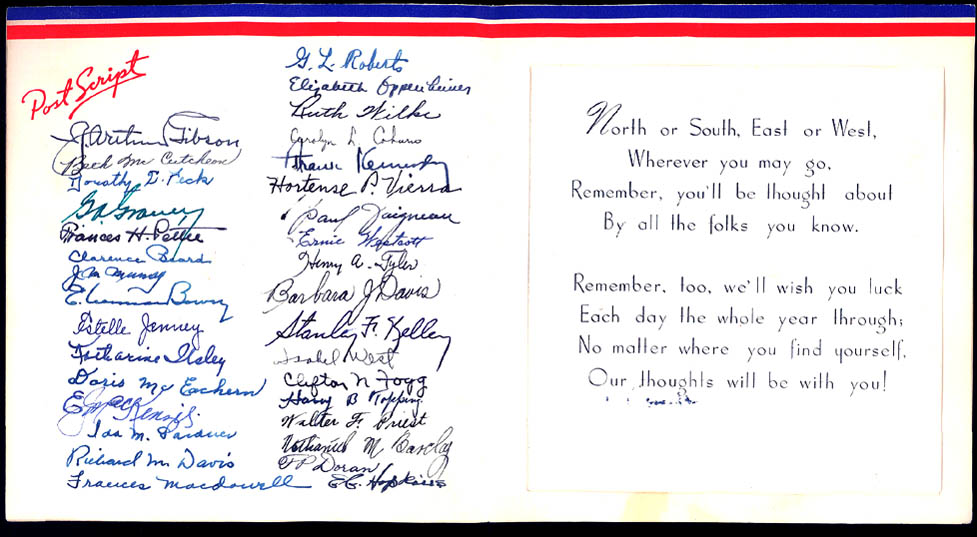 Post Script
J. Arthur Gibson
Beck Mc Cutcheon
Dorothy D. Peck
Frances H. Pettee
Clarence Beard
J M Munsy
E. Bowry
Estelle Jenney
Katharine Ilsley
Doris Mc Eachern
Ida M. Pardner
Richard M. Davis
Frances Macdowell
G. L. Roberts
Elizabeth Oppenheimer
Ruth Wilke
Carolyn L.
Frank Kennedy
Hortense P. Vierra
Paul Daigneau
Ernie Westcott
Henry A. Tyler
Barbara J Davis
Stanley F. Kelley
Isabel West
Clifton N Fogg
Harry B Topping
Walter F. Priest
Nathaniel M Barclay
T P Doran
E.C. Hopkins
North or South, East or West,
Wherever you may go,
Remember, you'll be thought about
By all the folks you know.
Remember, too, we'll wish you luck
Each day the whole year through;
No matter where you find yourself,
Our thoughts will be with you!